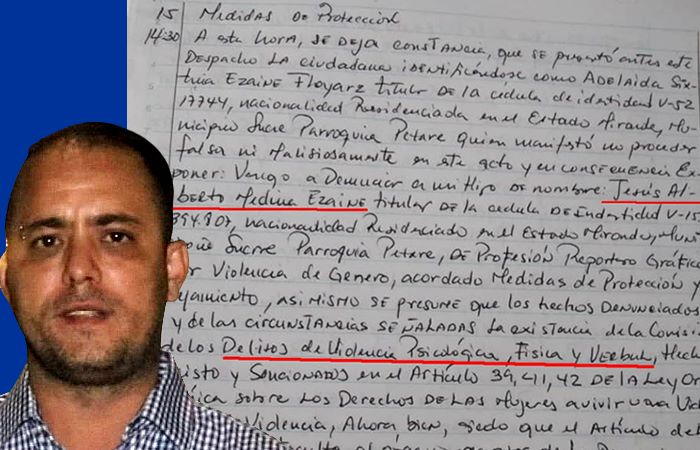 15 Medidas de Protección
14:30 A esta hora, se deja constancia, que se presentó antes este
Despacho la ciudadana identificándose como Adelaida Six-
tina Ezaine Floyarz titular de la cédula de identidad V-52
17744, nacionalidad Residenciada en el Estado Miranda, Mu-
nicipio Sucre Parroquia Petare quien manifestó no proceder
falsa ni Malisiosamente en este acto y en consecuencia Ex-
poner: Vengo a Denunciar a mi Hijo de nombre: Jesús Al-
berto Medina Ezaine titular de la cedula de Indentidad V-15
394.907, nacionalidad Residenciado en el Estado Miranda, Muni
Sucre Parroquia Petare, de Profesión Reportero Gráfico
Violencia de Genero, acordado Medidas de Protección y
, asi mismo se presume que los hechos denunciados
y de las circunstancias señaladas la existencia de la Comisió
de los Delitos de Violencia Psicológica, Fisica y Verbal, Hech
isto y Sancionados en el Artículo 39, 41, 42 de la Ley Or
ica sobre los Derechos de las Mujeres a vivir una Vid
Violencia, Ahora bien, siedo que el Artículo del